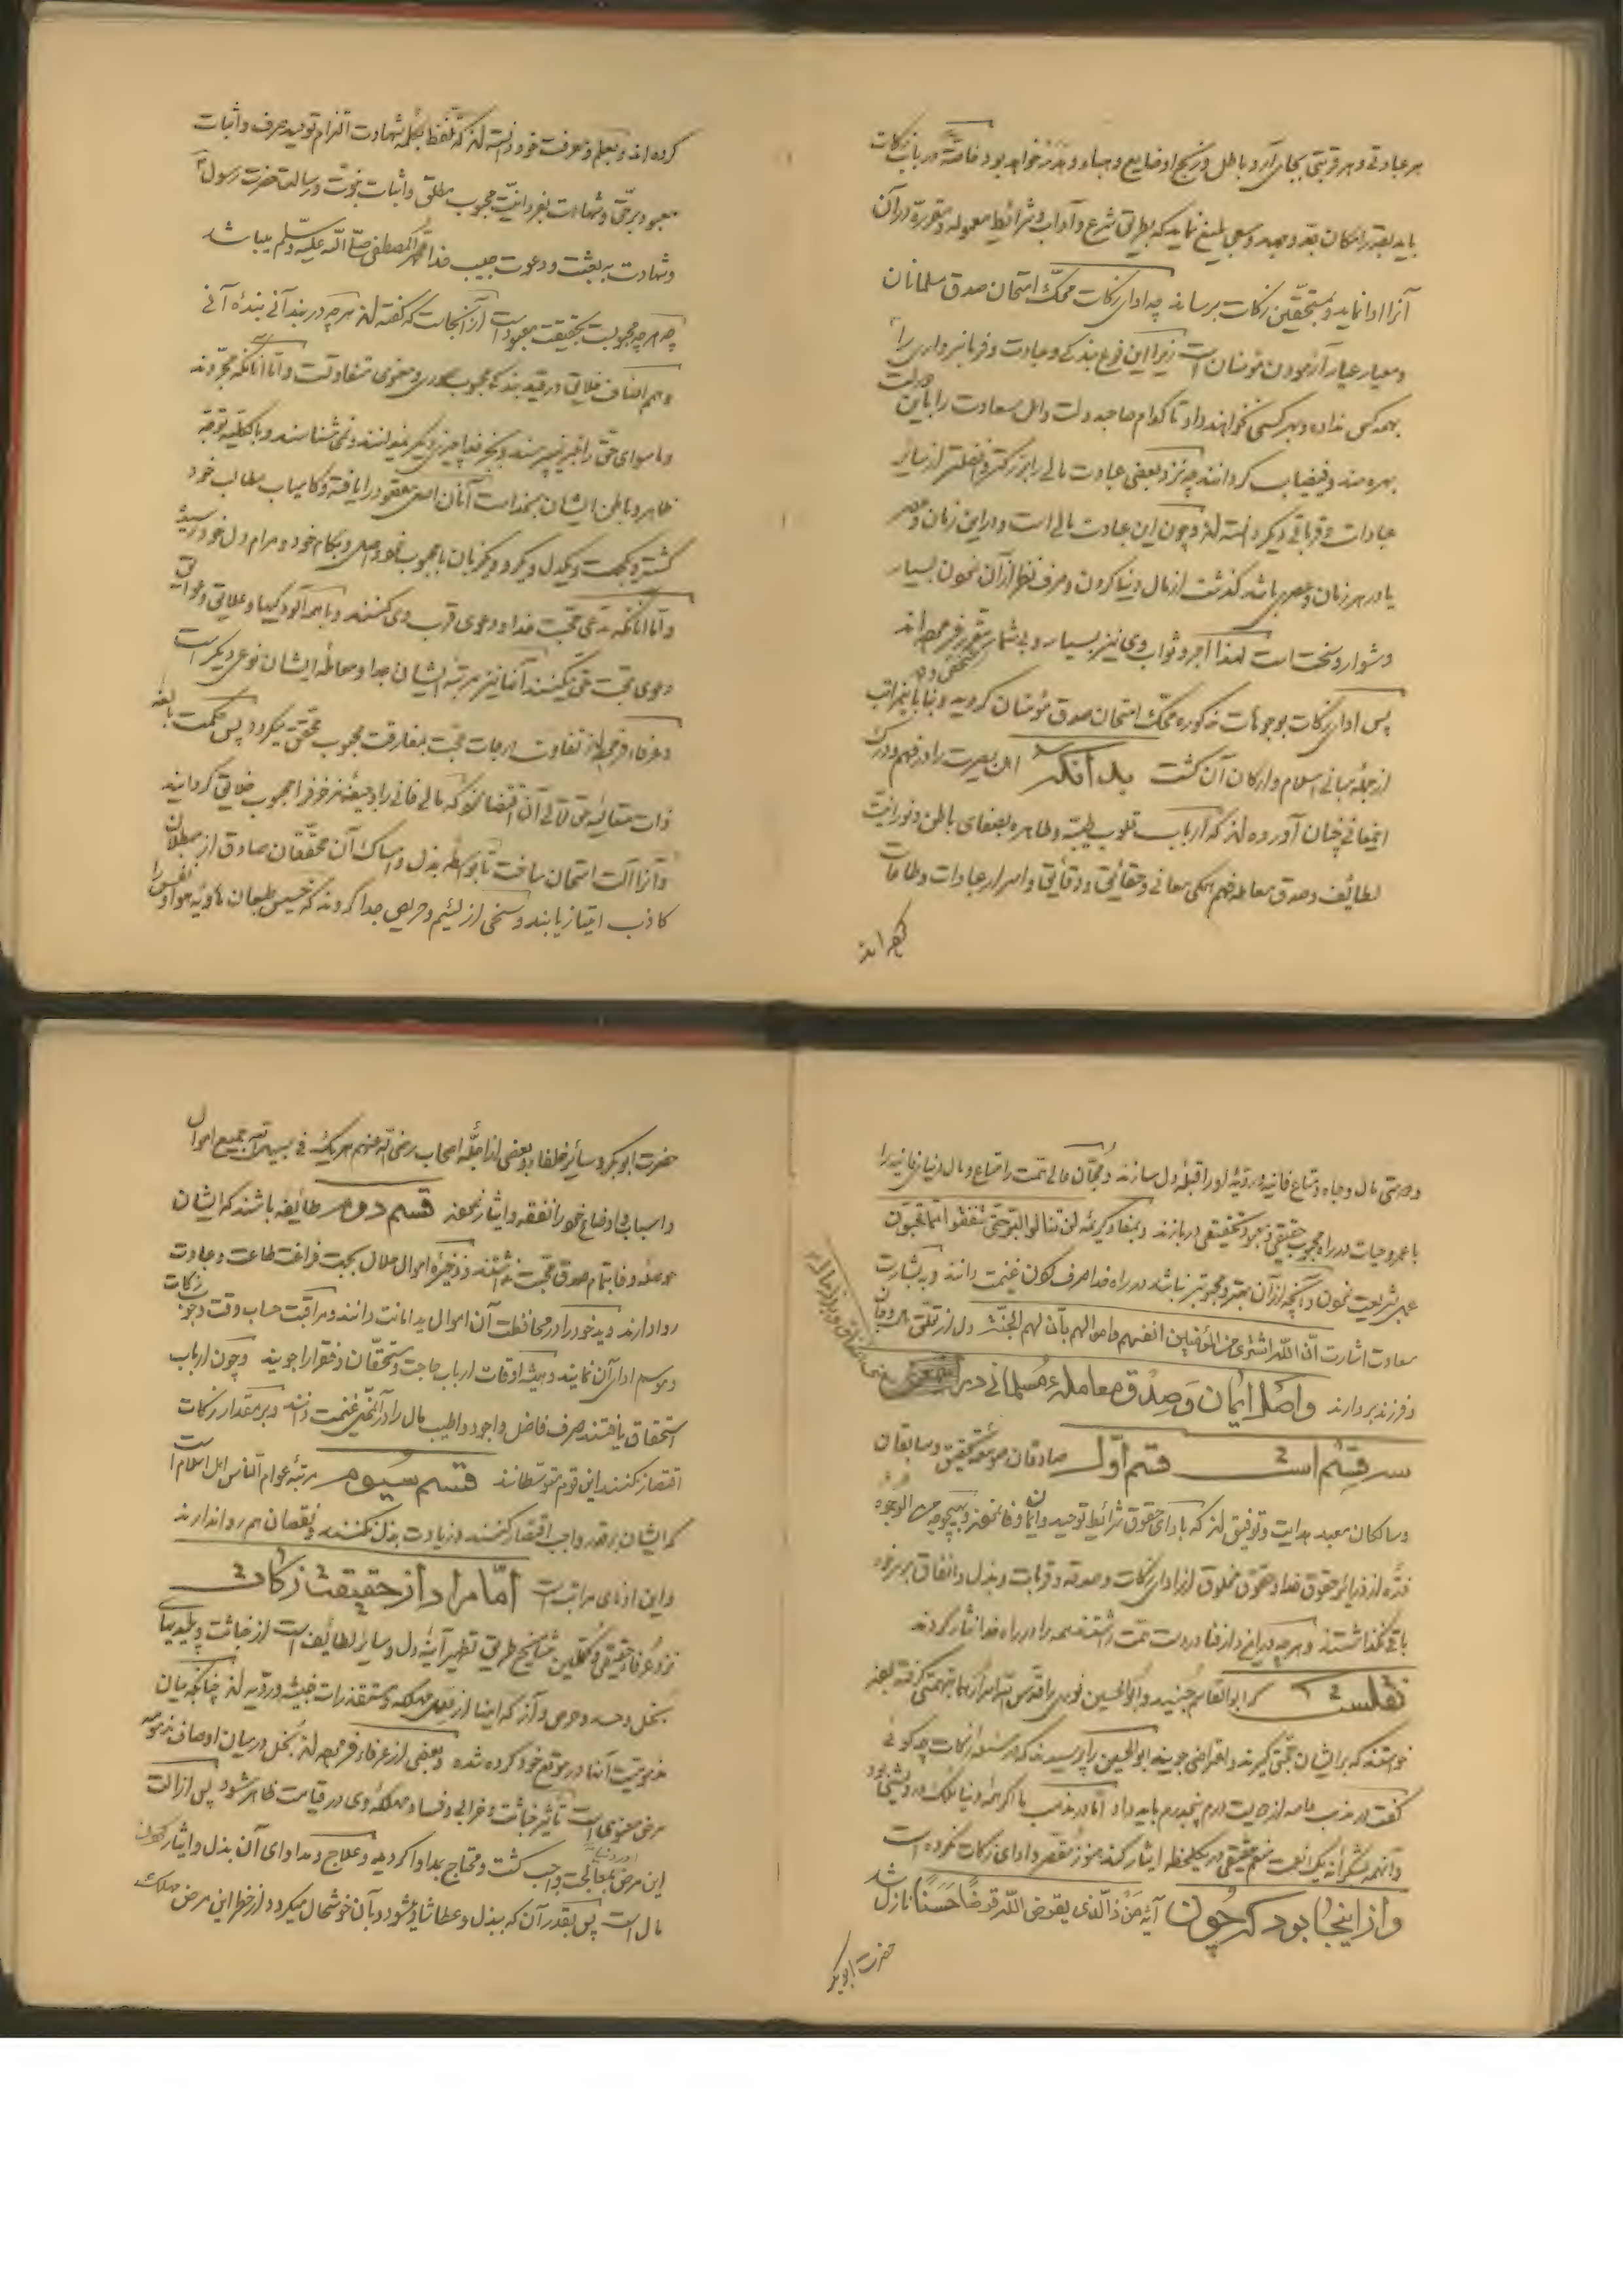 هر عبادتی و هر قربتی بجای آرد باطل و رنج او ضایع و هباء و هدر خواهد بود خاصةً در باب زکات
باید بقدر امکان جد و جهد و سعی بلیغ نماید که بطریق شرع و آداب و شرائط معموله و مقرره در آن
آنرا ادا نماید و بمستحقین زکات برساند چه ادای زکات محکّ امتحان صدق مسلمانان
و معیار عیار آزمودن مؤمنان است زیرا این نوع بندگی و عبادت و فرمانبرداری را
بهمه کس نداده و بهر کسی نخواهند داد تا کدام صاحب دولت و اهل سعادت را باین دولت
بهره مند و فیضیاب گردانند چه نزد بعضی عبادت مالی را بزرگتر و افضلتر از سایر
عبادات و قرباتی دیگر دانسته اند و چون این عبادت مالی است و در این زمان و عصر
یا در هر زمان و عصر باشد گذشت از مال دنیا کردن و صرف نظر از آن نمودن بسیار
دشوار و سخت است لهذا اجر و ثواب وی نیز بسیار و بی شمار مقرر فرموده اند
پس ادای زکات بوجوهات مذکوره محکّ امتحان صدق مؤمنان گردید و بنا باینمراتب
از جمله مبانی اسلام و ارکان آن گشت بدانکه اهل بصیرت را در فهم و درک
اینمعانی چنان آورده اند که ارباب قلوب طیبه و طاهره بصفای باطن و نورانیت
لطائف و صدق معامله فهم همگی معانی و حقائق و دقائق و اسرار عبادات و طاعات
کرده اند
کرده اند و بعلم و معرفت خود دانسته اند که تلفظ بکلمه شهادت التزام توحید صرف و اثبات
معبود برحق و شهادت بفردانیت محبوب مطلق و اثبات نبوت و رسالت حضرت رسول
و شهادت به بعثت و دعوت حبیب خدا محمد المصطفی صلّی الله علیه و سلّم میباشد
چه هرچه محبوبست بحقیقت معبود است از آنجاست که گفته اند هرچه در بند آنی بنده آنی
و هم اصناف خلائق در قید بندگی محبوب صوری و معنوی متفاوتست و امّا آنانکه مجرّدند
و ماسوای حقّ را غیر نپرستند و بجز خدا چیزی دیگر نمیدانند و نمی شناسند و بالکلیه توجه
ظاهر و باطن ایشان بخداست آنان اصل مقصود را یافته و کامیاب مطالب خود
گشته و یکجهت و یکدل و یکرو و یکزبان با محبوب خود واصل و بکام خود و مرام دل خود رسیده
و امّا آنانکه مدّعی محبّت خدا و دعوی قرب وی کنند و با همه آلودگیها و علائق و عوائق
دعوی محبت حق میکنند آنها نیز مرتبه ایشان جدا و معامله ایشان نوعی دیگر است
و عرفاء فرموده اند تفاوت درجات محبت بمفارقت محبوب محقق میگردد پس حکمت بالغه
ذات متعالیه حق تعالی آن اقتضا نمود که مالی فانی را و جیفه مزخرف را محبوب خلائق گردانید
و آنرا آلت امتحان ساخت تا بواسطه بذل و امساک آن محقّقان صادق از مبطلان
کاذب امتیاز یابند و سخی از لئیم و حریص جدا گردند که خسیس طبعان هاویه هوا و نفس را
و دوستی مال و جاه و متاع فانیه دنیویه را قبله دل سازند و محبّان عالی همت را متاع و مال دنیا فانیه را
با عمر و حیات در راه محبوب حقیقی در بازند و بمفاد کریمه لن تنالوا البرّ حتّی تنفقوا ممّا تحبّون
عمل بشریعت نموده و آنچه از آن بهتر و محبوبتر نباشد در راه خدا صرف کردن غنیمت دانند و به بشارت
سعادت اشارت انّ الله اشتری من المؤمنین انفسهم و اموالهم بأنّ لهم الجنّة دل از تعلق مال و جان
و فرزند بردارند و اصل ایمان و صدق معامله مسلمانی در
سه قسم است قسم اوّل صادقان موسّع تحقیق و سابقان
و سالکان معبد هدایت و توفیق اند که بادای حقوق شرائط توحید و ایمان وفا نموده و بهیچوجه من الوجوه
ذرّه از ذرائر حقوق خدا و حقوق مخلوق از ادای زکات و صدقه و قربات و بذل و انفاق بر خود
باقی نگذاشتند و هرچه در این دار فنا در دست همت داشتند همه را در راه خدا نثار کردند
نقلست که ابوالقاسم جنید و ابوالحسین نوری را قدس سرّهما بتهمتی گرفته بودند
خواستند که بر ایشان حجّتی گیرند و اعتراض جویند ابوالحسین را پرسیدند که در مسئله زکات چه گوئی
گفت در مذهب عامه از دویست درم پنجدرم باید داد امّا در مذهب ما اگر همه دنیا ملک درویشی بود
و آنهمه بشکرانه یک نعمت منعم حقیقی در یکلحظه ایثار کند هنوز مقصّر و ادای زکات نکرده است
و از اینجا بود که چون آیه من ذا الّذی یقرض الله قرضاً حسناً نازل شد
حضرت ابوبکر
حضرت ابوبکر و سایر خلفاء و بعضی از اجلّه اصحاب رضی الله عنهم هریک فی سبیل الله جمیع اموال
و اسباب و اوضاع خود را نفقه و ایثار نمودند قسم دوم طائفه باشند که ایشان
حوصله وفا بتمام صدق محبت نداشتند ذخیره اموال حلال بجهت فراغت طاعت و عبادت
روا دارند و ید خود را در محافظت آن اموال ید امانت دانند و مراقبت حساب وقت وجوب زکات
و موسم ادای آن نمایند و همیشه اوقات ارباب حاجت و مستحقان و فقرا را جویند و چون ارباب
استحقاق یافتند صرف فاضل و اجود و اطیب مال را در آنمحل غنیمت دانند و بر مقدار زکات
اقتصار نکنند این قوم متوسطانند قسم سیوم مرتبه عوام النّاس اهل اسلام است
که ایشان بر قدر واجب اقتصار کنند و زیادت بذل نکنند و نقصان هم روا ندارند
و این ادنای مراتب است امّا مراد از حقیقت زکات
نزد عرفاء حقیقی و محققین مشایخ طریق تطهیر آینه دل و سایر لطائف است از خباثت و پلیدیهای
بخل و حسد و حرص و آز که اینها از مهلکه و مستقذرات خبیثه و ردّیه اند چنانکه بیان
مذمومیت آنها در موقع خود کرده شده و بعضی از عرفاء فرموده اند بخل در میان اوصاف مذمومه
مرض معنوی است تأثیر خباثت و خرابی و فساد مهلکه وی در قیامت ظاهر شود پس ازالت
این مرض بمعالجت واجب گشت و محتاج بمداوا گردید و علاج و مداوای آن بذل و ایثار نمودن
مال است پس بقدر آن که ببذل و عطا شاد میشود و بآن خوشحال میگردد از خطر این مرض مهلک